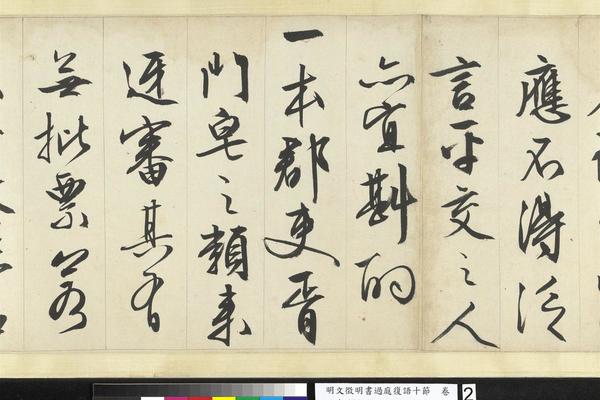 應不得泛
言平交之人
亦宜斟酌
一本郡吏胥
門皂之類來
迓審其有
無批票若
明文徵明書過庭復語十節 卷
2